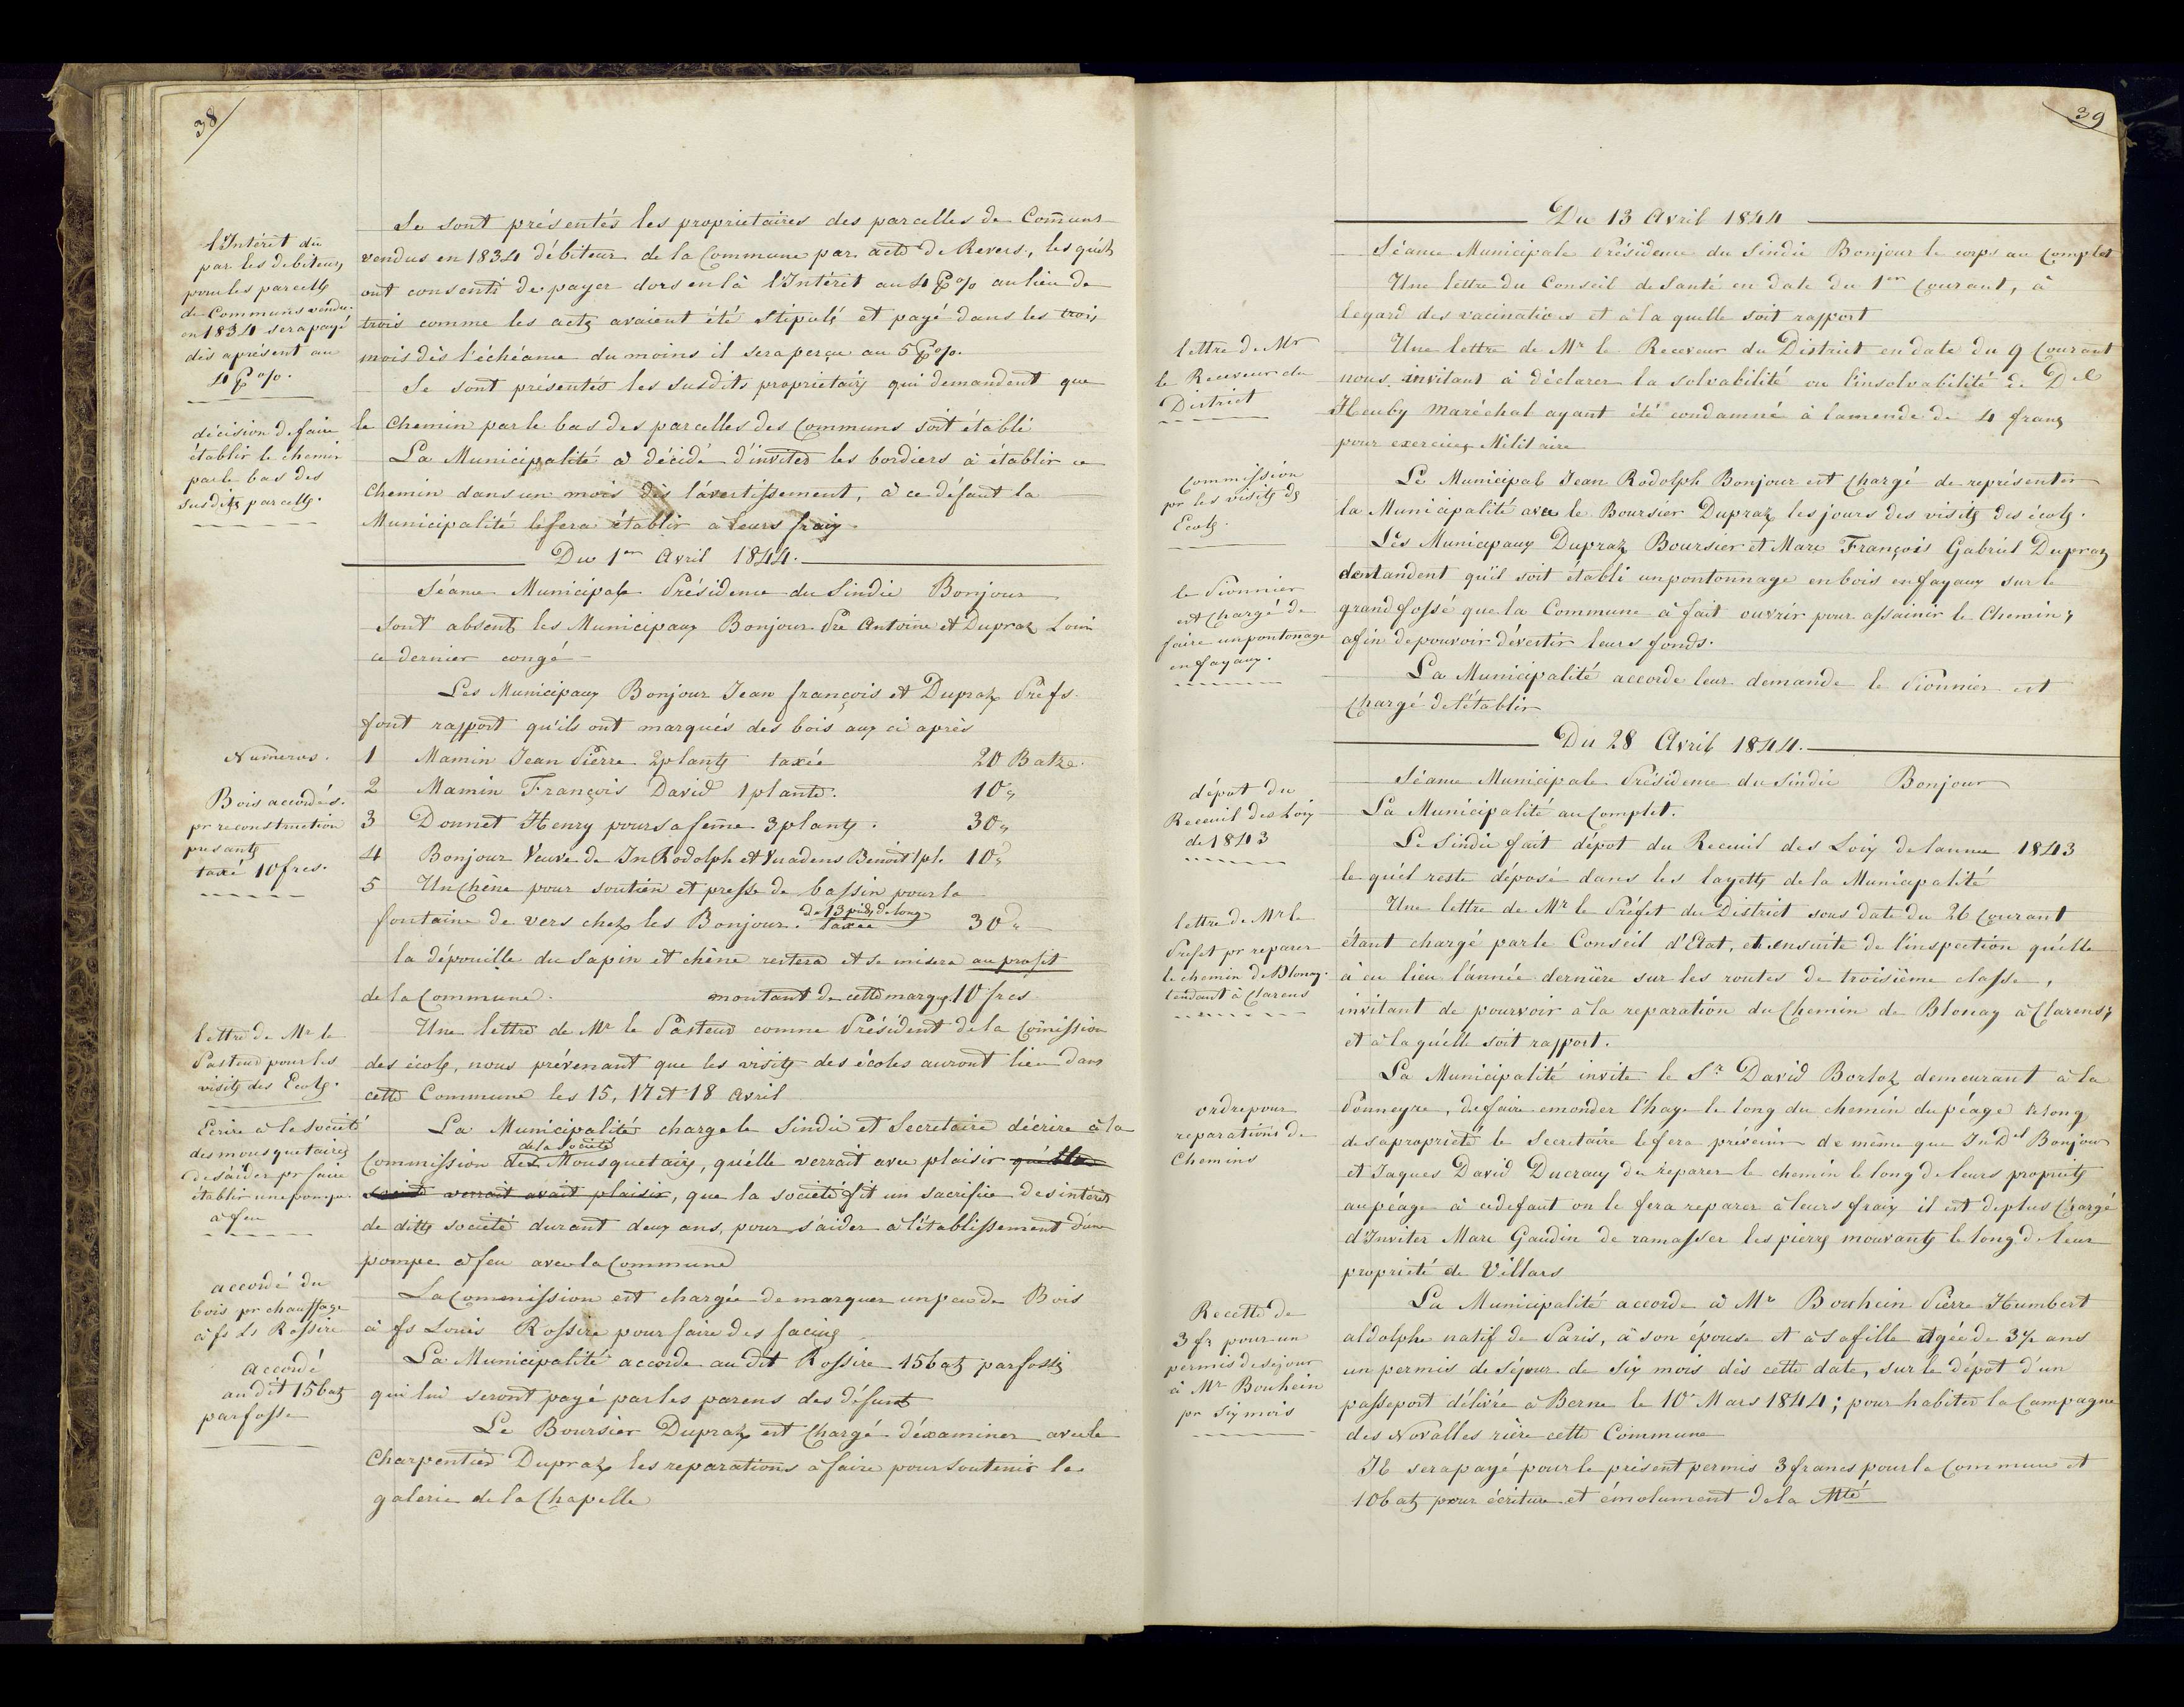 38
l'Intérêt du
par les debiteurs
pour les parcelles
de Communs vendu
en 1834 sera payé
dès aprésent au
4 P%.
décision de faire
établir le chemin
par le bas des
susdites parcelles.
Numeros.
Bois accordés.
pr reconstruction
presants
taxé 10 frcs.
lettre de Mr le
Pasteur pour les
visites des Ecoles.
Ecrire à la Societé
des mousquetaires
de s'aider pr faire
établir une pompe
à feu
accordé du
bois pr chauffage
à fs Ls Rossire
accordé
au dit 15 batz
par fosse
Se sont présentés les proprietaires des parcelles de Comuns
vendus en 1834 débiteur de la Commune par acte de Revers, les quels
ont consenti de payer dorsenlà l'Intérêt au 4 P% au lieu de
trois comme les actes avaient été stipulés et payé dans les trois
mois dès l'échéance du moins il sera perçu au 5 P%.
Se sont présentés les susdits proprietaires qui demandent que
le Chemin par le bas des parcelles des Communs soit établi
La Municipalité à décidé d'inviter les bordiers à établir ce
Chemin dans un mois dès l'avertissement, à ce défaut la
Municipalité le fera établir à leurs frais.
Du 1er Avril 1844.
Séance Municipale Présidence du Sindic Bonjour
sont absents les Municipaux Bonjour Pre Antoine et Dupraz Louis
ce dernier congé
Les Municipaux Bonjour Jean françois et Dupraz Prefs.
font rapport qu'ils ont marqués des bois aux ci après
1 Mamin Jean Pierre 2 plantes taxée 20 Batze.
2 Mamin François David 1 plante. 10 "
3 Donnet Henry pour sa feme 3 plantes. 30 "
4 Bonjour Veuve de Jn Rodolph et Vuadens Benoit 1 pl. 10 "
5 Un Chêne pour soutien et presse de bassin pour la
fontaine de vers chez les Bonjour. de 13 pieds de long taxée 30 "
la dépouille du sapin et chêne restera et se misera au profit
de la Commune. montant de cette marque 10 frcs
Une lettre de Mr le Pasteur comme Président de la Comission
des écoles, nous prévenant que les visites des écoles auront lieu dans
cette Commune les 15, 17 et 18 Avril
La Municipalité charge le Sindic et Secretaire d'écrire à la
Commission des de la Societé Mousquetaires, qu'elle verrait avec plaisir qu'elle
verrait avait plaisir, que la societé fit un sacrifice des intérêts
de dite societé durant deux ans, pour s'aider à l'établissement d'une
pompe à feu avec la Commune
La Commission est chargée de marquer un peu de Bois
à fs Louis Rossire pour faire des facines
La Municipalité accorde au dit Rossire 15 batz par fosses
qui lui seront payé par les parens des défunts
Le Boursier Dupraz est Chargé d'éxaminer avec le
Charpentier Dupraz les reparations à faire pour soutenir la
galerie de la Chapelle
39
lettre de Mr
le Receveur du
District
Commission
pr les visites des
Ecoles.
le Pionnier
est chargé de
faire un pontonage
en fayaux.
dépot du
Receuil des Loix
de 1843
lettre de Mr le
Prefet pr reparer
le chemin de Blonay
tendant à Clarens
ordre pour
reparations de
Chemins
Recette de
3 fr pour un
permis de sejour
à Mr Bouhein
pr six mois
Du 13 Avril 1844
Séance Municipale Présidence du Sindic Bonjour le corps au Complet
Une lettre du Conseil de Santé en date du 1er Courant, à
legard des vacinations et à la quelle soit rapport
Une lettre de Mr le Receveur du District en date du 9 Courant
nous invitant à déclarer la solvabilité ou l'insolvabilité de Del
Heuby Maréchal ayant été condamné à lamende de 4 francs
pour exercices Militaire
Le Municipal Jean Rodolph Bonjour est Chargé de représenter
la Municipalité avec le Boursier Dupraz les jours des visites des écoles.
Les Municipaux Dupraz Boursier et Marc François Gabriel Dupraz
demandent qu'il soit établi un pontonnage en bois en fayaux sur le
grand fossé que la Commune à fait ouvrir pour assainir le Chemin,
afin de pouvoir dévestir leurs fonds.
La Municipalité accorde leur demande le Pionnier est
Chargé de l'établir
Du 28 Avril 1844.
Séance Municipale Présidence du Sindic Bonjour
La Municipalité au Complet.
Le Sindic fait dépot du Receuil des Loix de lannée 1843
le quél reste déposé dans les layettes de la Municipalité
Une lettre de Mr le Préfet du District sous date du 26 Courant
étant chargé par le Conseil d'Etat, et ensuite de l'inspection quelle
à eu lieu l'année dernière sur les routes de troisième classe,
invitant de pourvoir à la reparation du Chemin de Blonay à Clarens,
et à laquélle soit rapport.
La Municipalité invite le Sr David Borloz demeurant à la
Ponneyre, de faire emonder l'haye le long du chemin du péage le long
de sa propriété le Secretaire le fera prévenir de même que Jn Del Bonjour
et Jaques David Ducraux de reparer le chemin le long de leurs propriétés
au péage à ce defaut on le fera reparer à leurs fraix il est de plus Chargé
d'Inviter Marc Gaudin de ramasser les pierres mouvantes le long de leur
propriété de Villars
La Municipalité accorde à Mr Bouhein Pierre Humbert
aldolphe natif de Paris, à son épouse et à sa fille agée de 3½ ans
un permis de Séjour de Six mois dès cette date, sur le dépot d'un
passeport délivré à Berne le 10 Mars 1844; pour habiter la Campagne
des Novalles rière cette Commune
Il sera payé pour le présent permis 3 francs pour la Commune et
10 batz pour écriture et émolument de la Mté